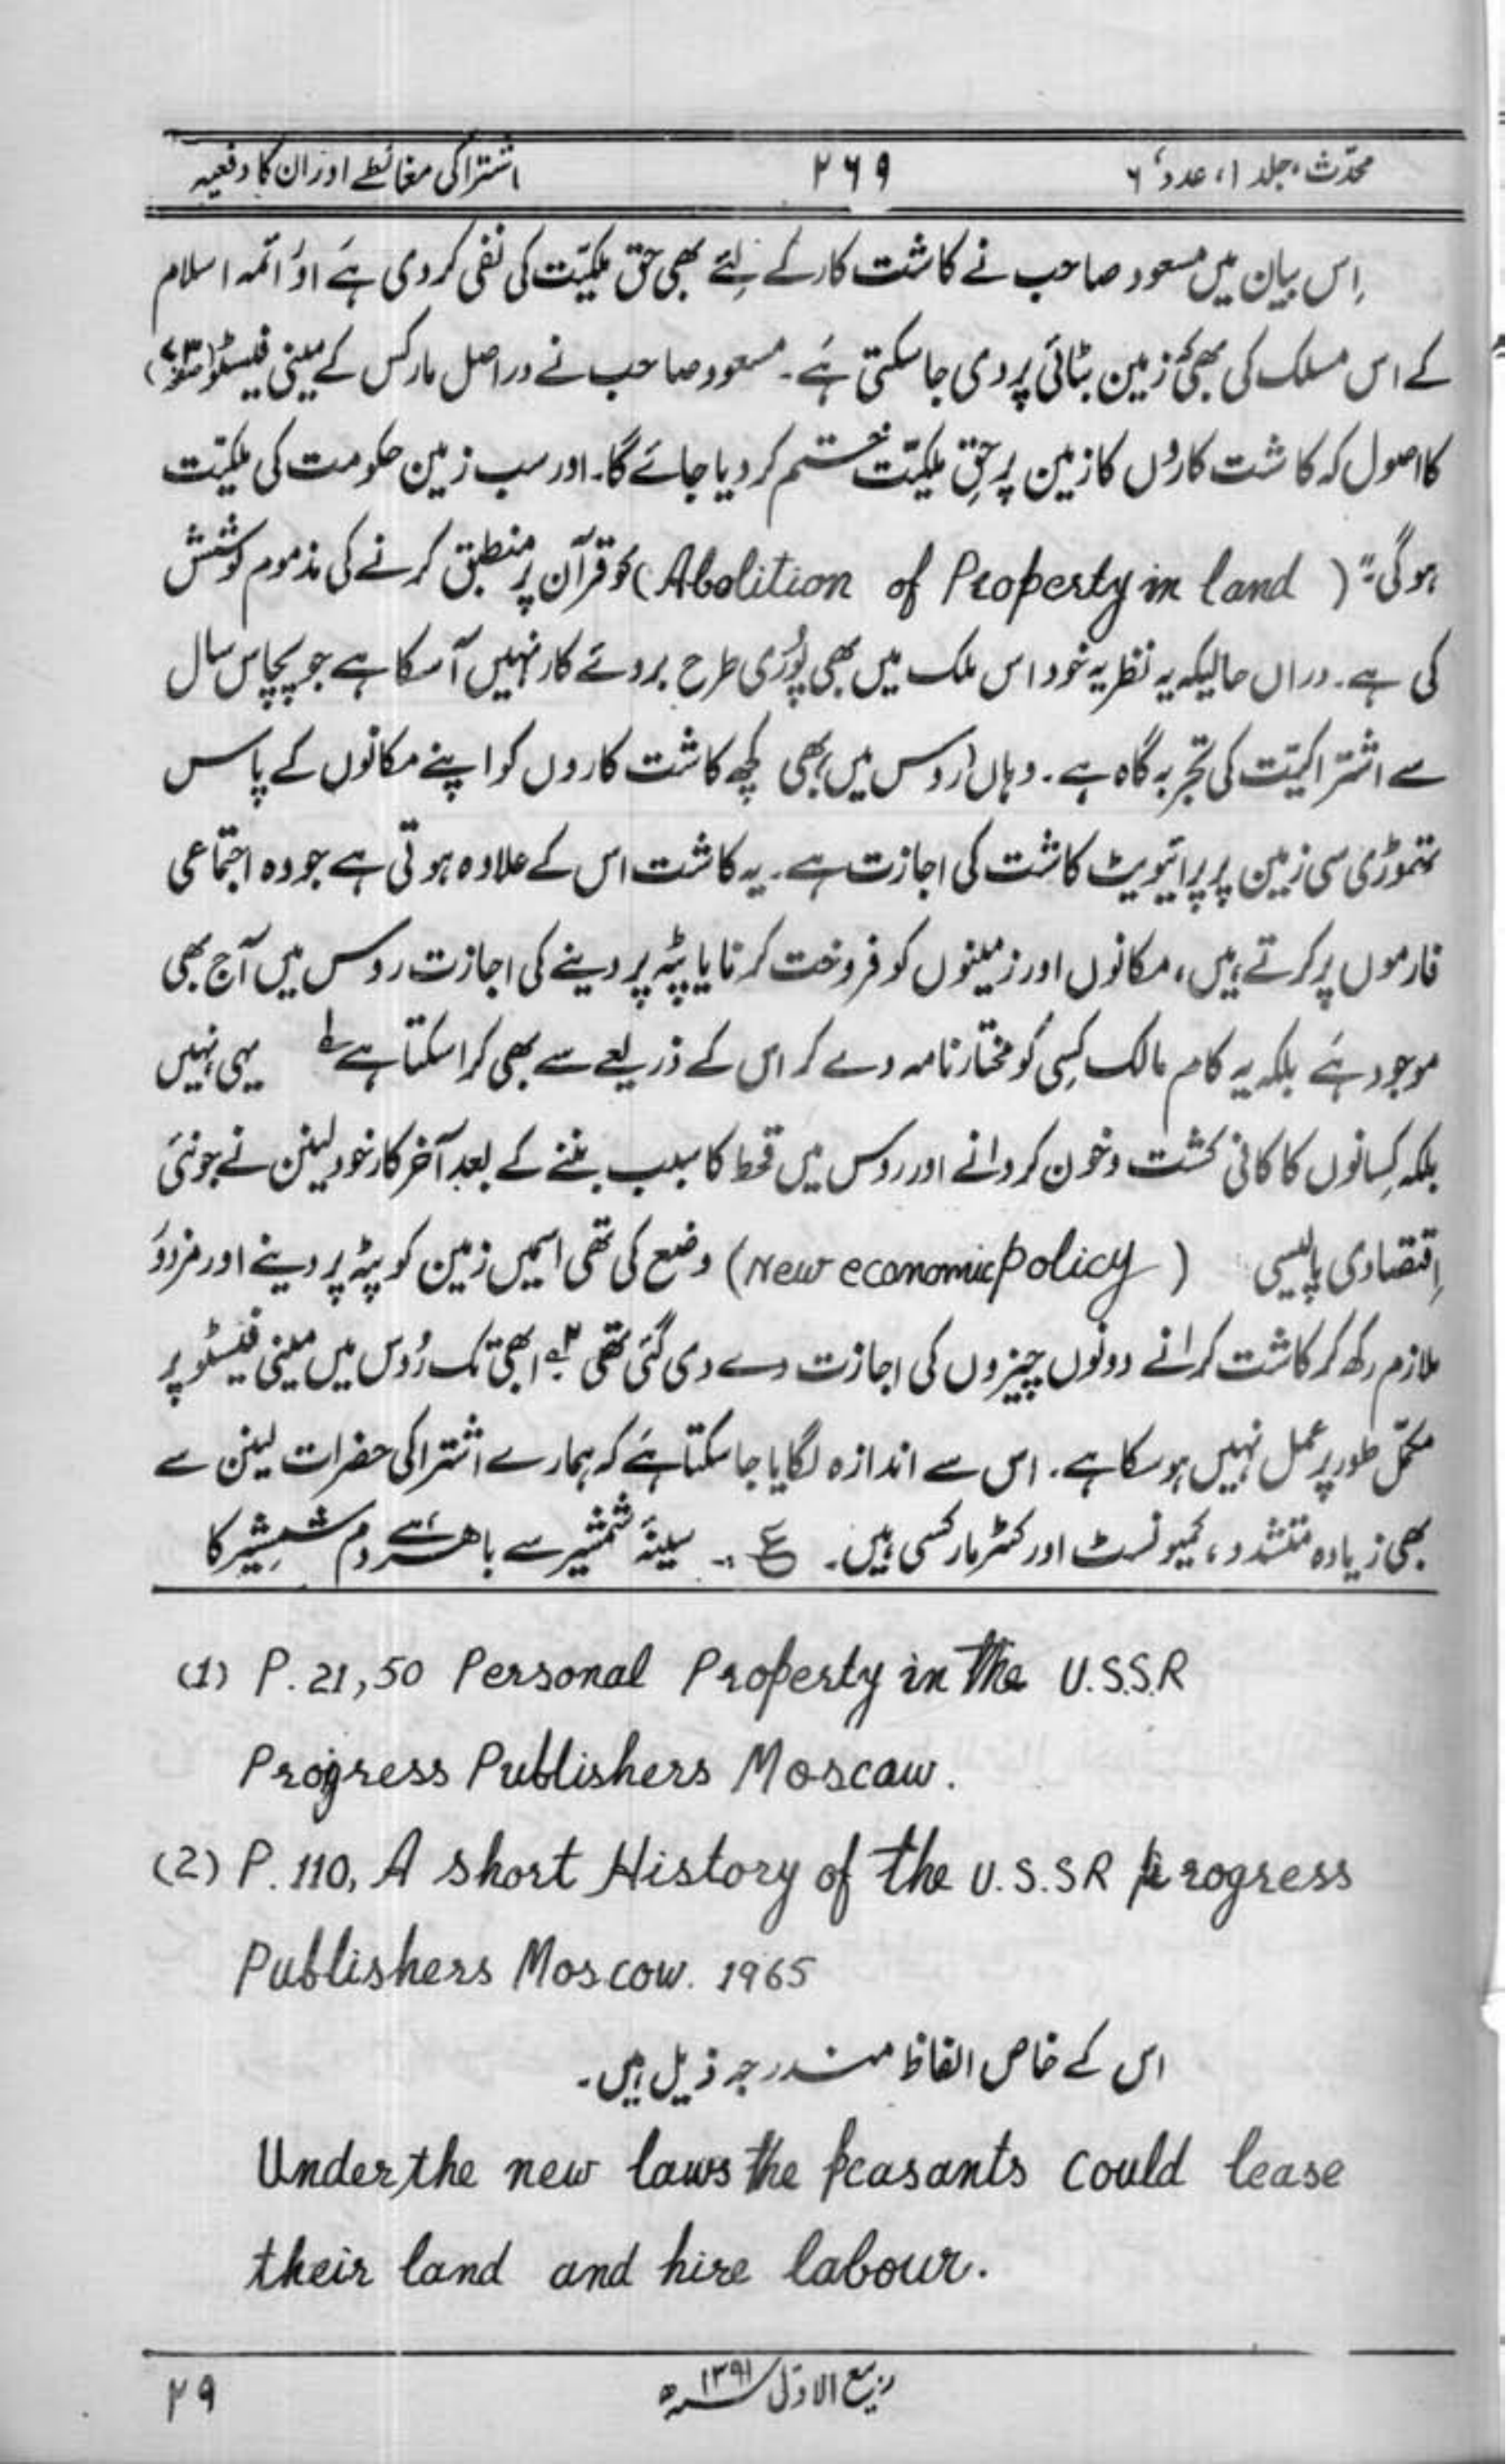 محدّث، جلد ۱، عدد ۶
۲۶۹
اشتراکی مغالطے اور ان کا دفعیہ
اِس بیان میں مسعود صاحب نے کاشت کار کے لئے بھی حق ملکیّت کی نفی کر دی ہے اور ائمہ اسلام
کے اس مسلک کی بھی کہ زمین بٹائی پر دی جا سکتی ہے۔ مسعود صاحب نے دراصل مارکس کے مینی فیسٹو
کا اصول کہ کاشت کاروں کا زمین پر حقِ ملکیّت ختم کر دیا جائے گا۔ اور سب زمین حکومت کی ملکیّت
ہو گی" (Abolition of Property in land) کو قرآن پر منطبق کرنے کی مذموم کوشش
کی ہے۔ دراں حالیکہ یہ نظریہ خود اس ملک میں بھی پُوری طرح بروئے کار نہیں آ سکا ہے جو پچاس سال
سے اشتراکیّت کی تجربہ گاہ ہے۔ وہاں (روس میں) بھی کچھ کاشت کاروں کو اپنے مکانوں کے پاس
تھوڑی سی زمین پر پرائیویٹ کاشت کی اجازت ہے۔ یہ کاشت اس کے علاوہ ہوتی ہے جو وہ اجتماعی
فارموں پر کرتے ہیں، مکانوں اور زمینوں کو فروخت کرنا یا پٹہ پر دینے کی اجازت روس میں آج بھی
موجود ہے بلکہ یہ کام مالک کِسی کو مختار نامہ دے کر اس کے ذریعے سے بھی کرا سکتا ہے ۱؎ یہی نہیں
بلکہ کِسانوں کا کافی کشت و خون کروانے اور روس میں قحط کا سبب بننے کے بعد آخر کار خود لینن نے جو نئی
اِقتصادی پالیسی (New economic policy) وضع کی تھی اسمیں زمین کو پٹہ پر دینے اور مزدور
ملازم رکھ کر کاشت کرانے دونوں چیزوں کی اجازت دے دی گئی تھی ۲؎ ابھی تک رُوس میں مینی فیسٹو پر
مکمّل طور پر عمل نہیں ہو سکا ہے۔ اس سے اندازہ لگایا جا سکتا ہے کہ ہمارے اشتراکی حضرات لینن سے
بھی زیادہ متشدد، کمیونسٹ اور کٹر مارکسی ہیں۔ ع .. سینۂ شمشیر سے باہر ہے دم شمشیر کا
(1) P. 21,50 Personal Property in the U.S.S.R
Progress Publishers Moscaw.
(2) P. 110, A short History of the U.S.SR progress
Publishers Moscow. 1965
اس کے خاص الفاظ مندرجہ ذیل ہیں۔
Under the new laws the peasants could lease
their land and hire labour.
ربیع الاوّل ۱۳۹۱ھ
۲۹